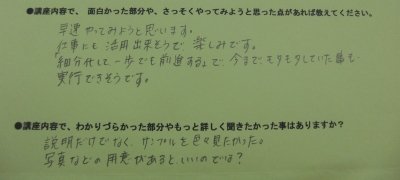 ●講座内容で、面白かった部分や、さっそくやってみようと思った点があれば教えてください。
早速やってみようと思います。
仕事にも活用出来そうで楽しみです。
「細分化して一歩でも前進する」で今までモタモタしていた事も
実行できそうです。
●講座内容で、わかりづらかった部分やもっと詳しく聞きたかった事はありますか？
説明だけでなく、サンプルを色々見たかった。
写真などの用意があると、いいのでは？